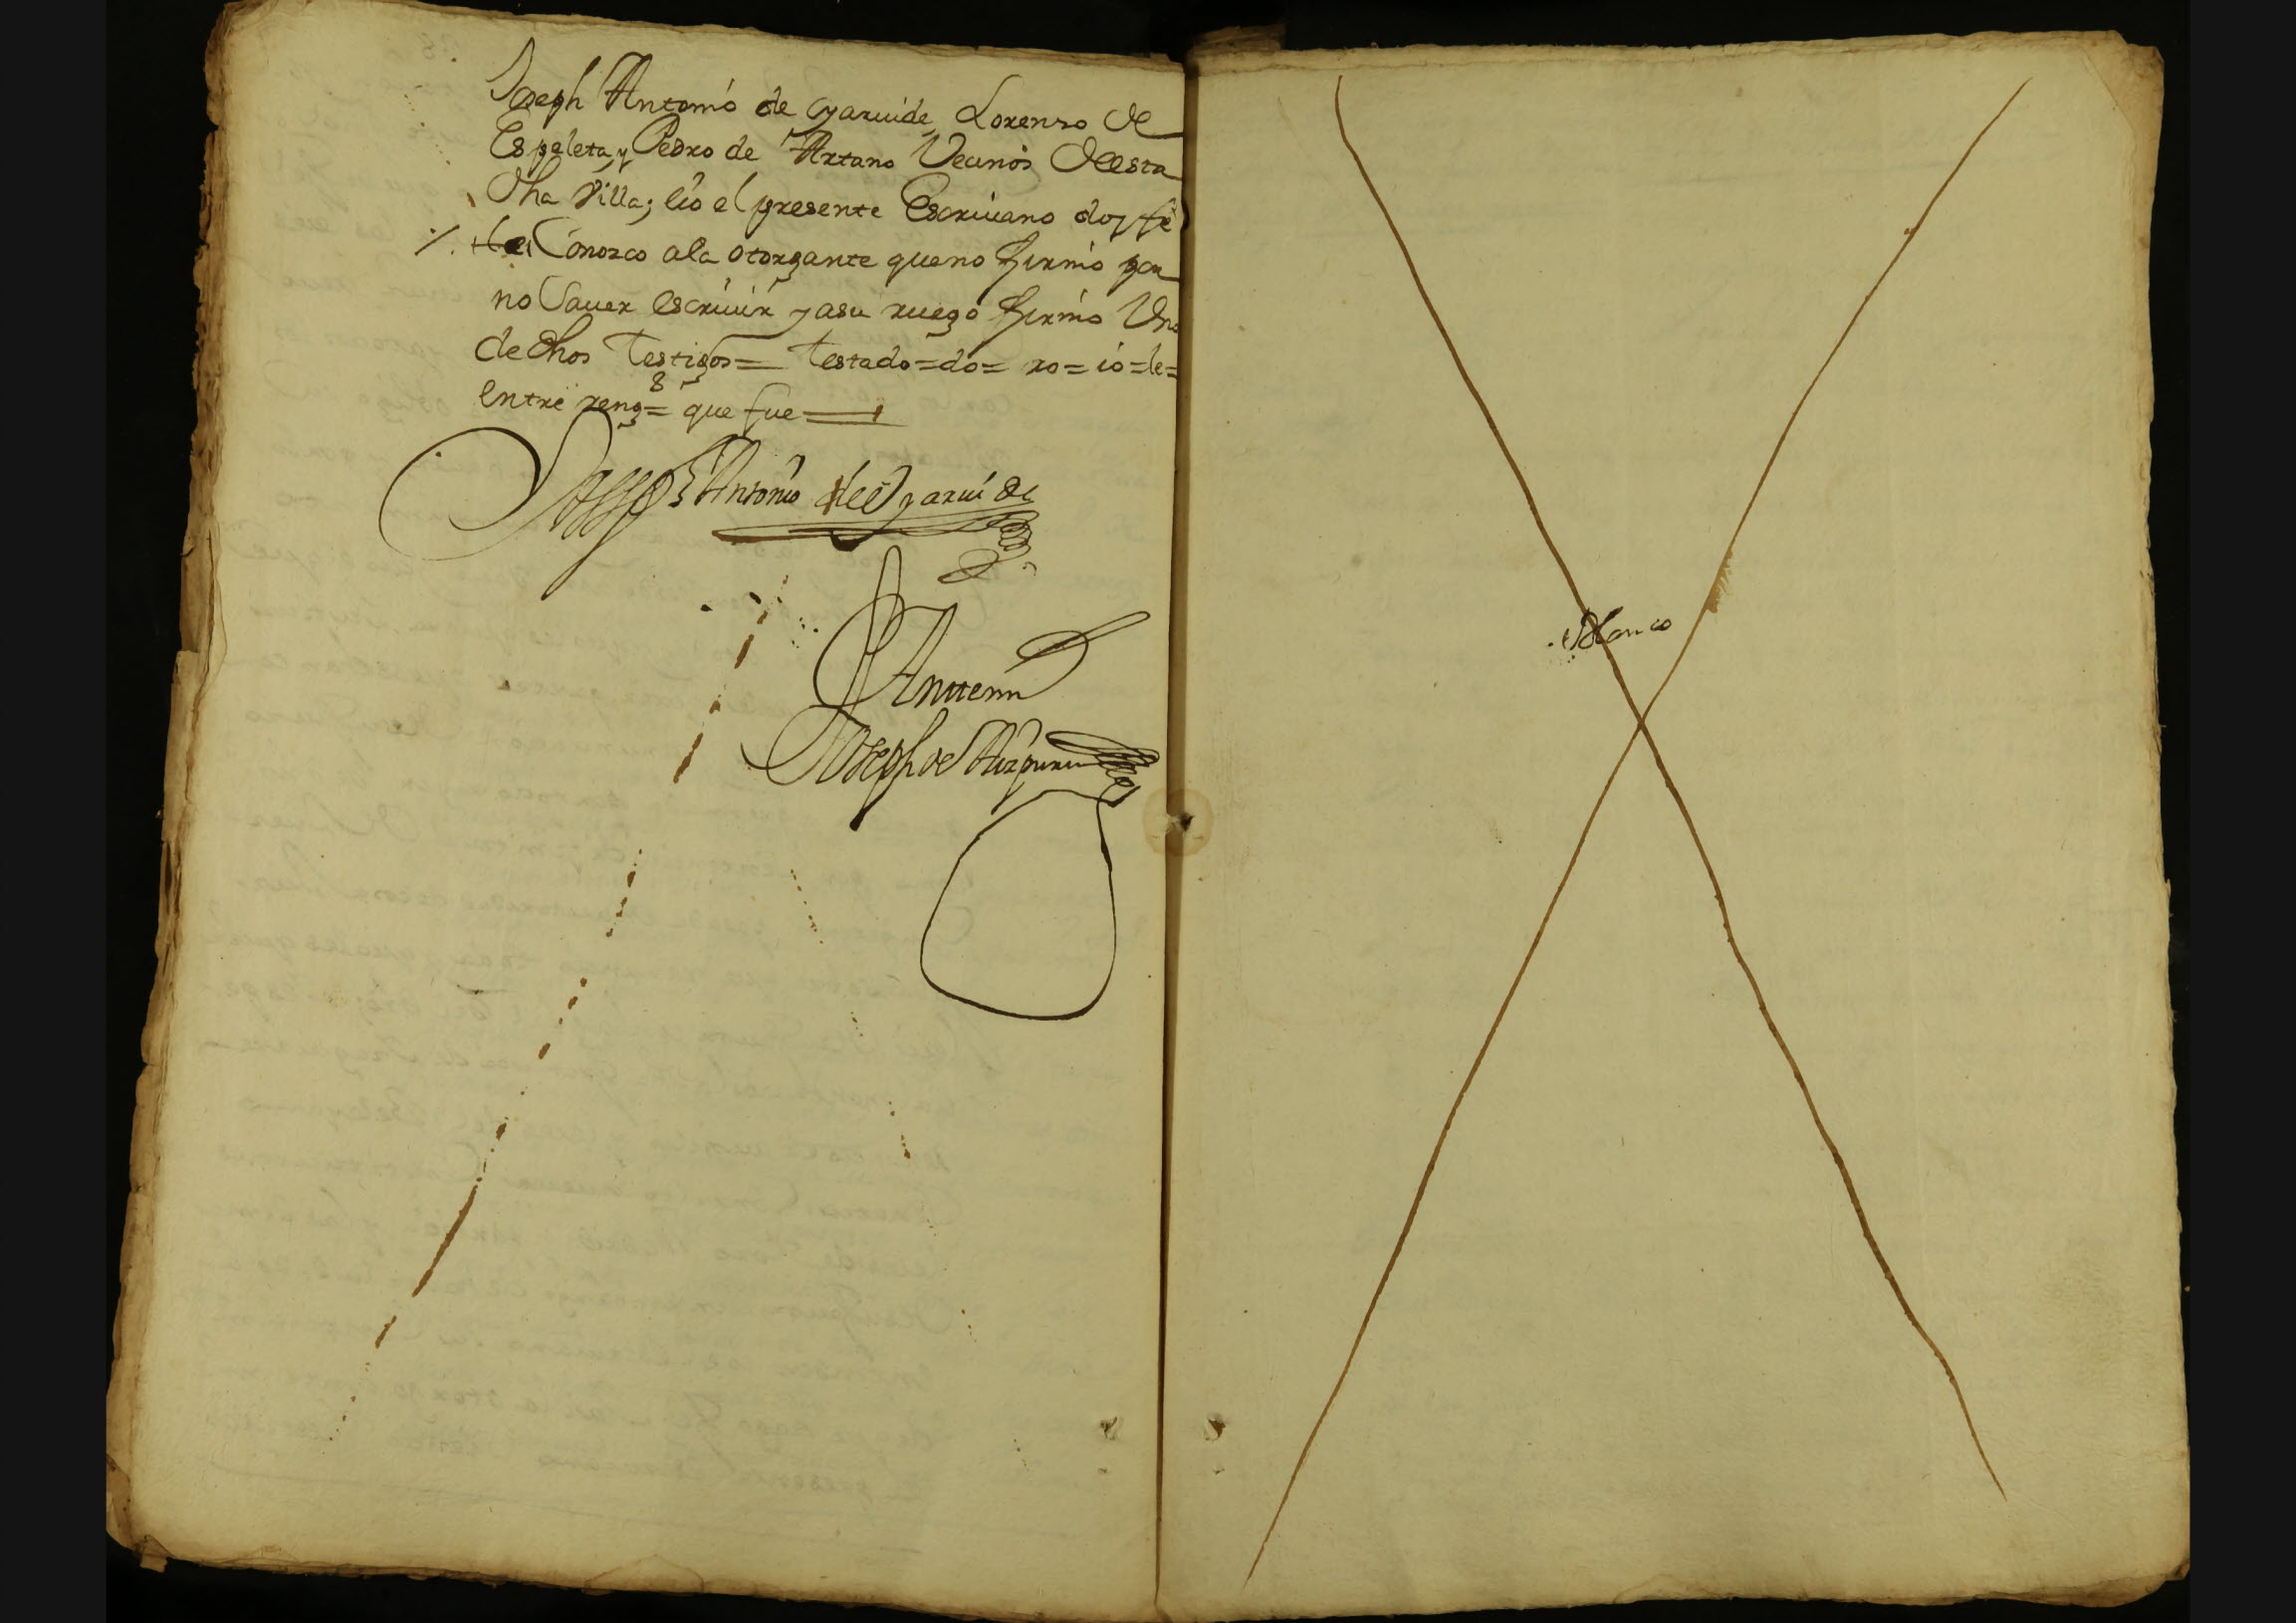 Joseph Antonio de Oyaruide, Lorenzo de
Espeleta, y Pedro de Artano Vecinos deesta
dha Villa; eio el presente Escriuano doy fe
Conozco ala otorgante queno firmo por
no Sauer escriuir y asu ruego firmo Uno
de dhos Testigos= Testado=do= ro=io=le=
entre reng.s= que fue
Joseph Antonio de Oyaruide
Antemi
Joseph de Aizpuru
Blanco